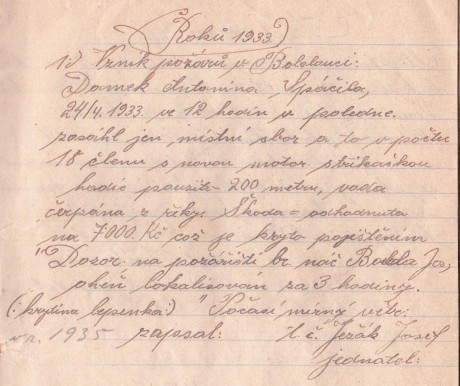 Roků 1933
1) Vznik požárů v Bolebouci:
Domek Antonina Spáčila,
24/4. 1933. ve 12 hodin v poledne.
zasáhl jen místní sbor a to v počtu
18 členu s novou motor. stříkačkou
hadic použito 200 metru, voda
čerpána z řeky. Škoda = odhadnuta
na 7000. Kč což je kryto pojištěním
"Dozor na požářišti br. nač. Josef,
oheň lokalisován za 3 hodiny.
(: krytina lepenka :) " Počasí mírný vítr.
v r. 1935 zapsal: t. č. Ježák Josef
jednatel: